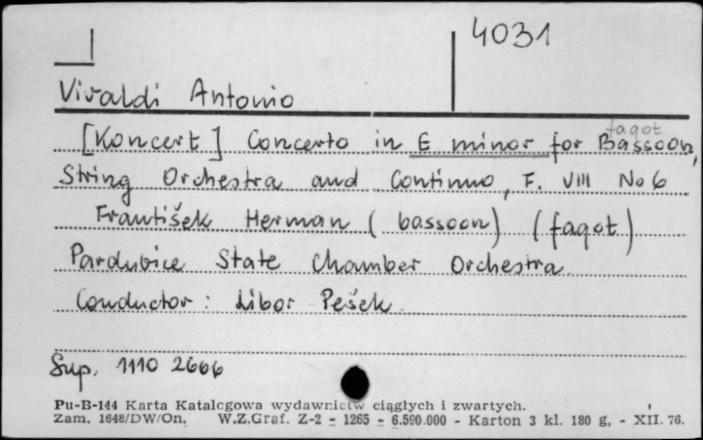 4031
Vivaldi Antonio
fagot
[Koncert] Concerto in E minor for Bassoon,
String Orchestra and Continuo, F. VIII No 6
František Herman (bassoon) (fagot)
Pardubice State Chamber Orchestra
Conductor: Libor Pešek
Sup. 1110 2666
Pu-B-144 Karta Katalogowa wydawnictw ciągłych i zwartych.
Zam. 1648/DW/On. W.Z.Graf. Z-2 - 1265 - 6.590.000 - Karton 3 kl. 180 g, - XII. 76.